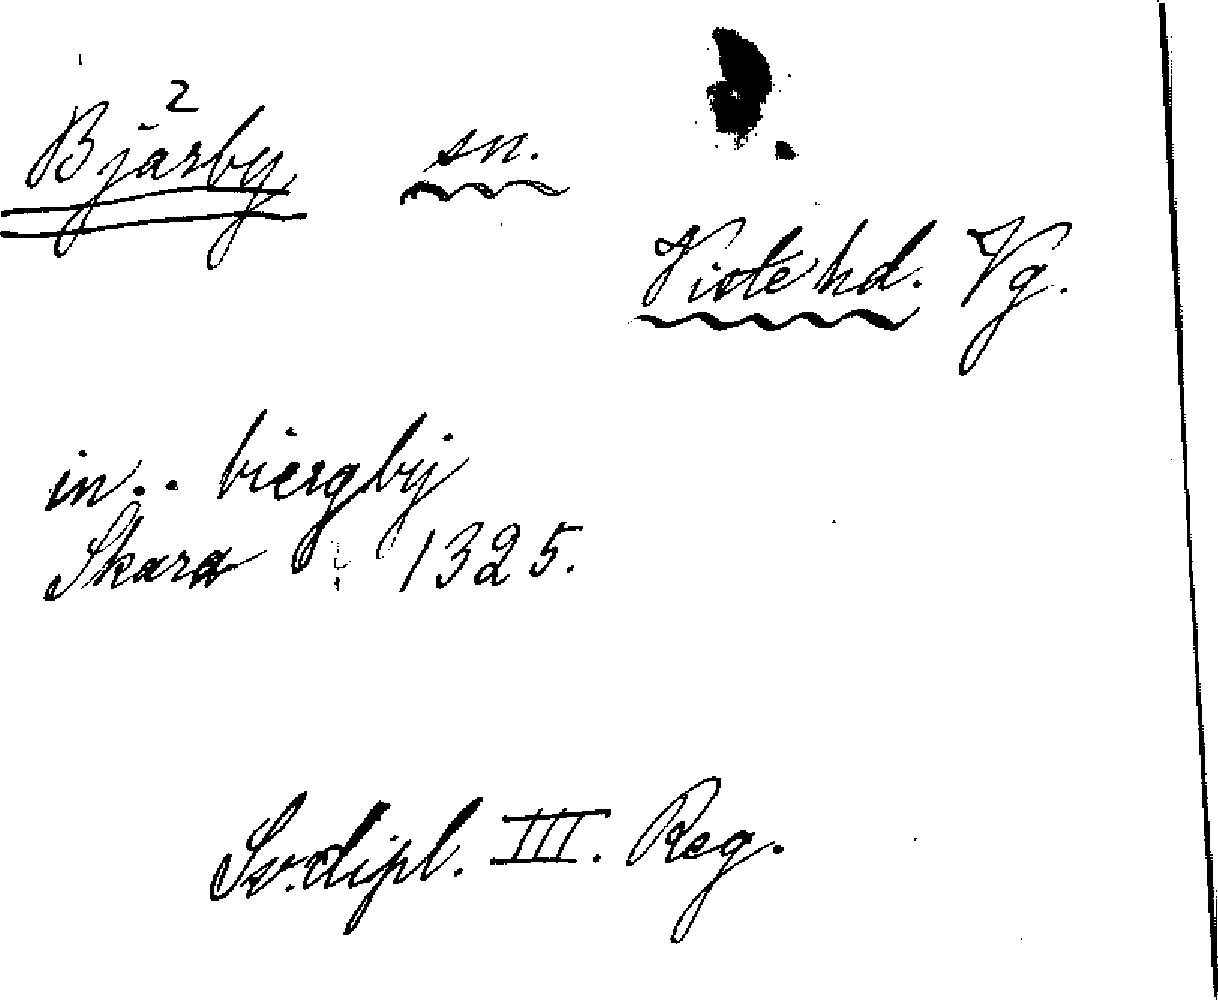 2
Bjärby sn.
Viste hd. Vg.
in.. biergby
Skara 1325.
Sv. dipl. III. Reg.